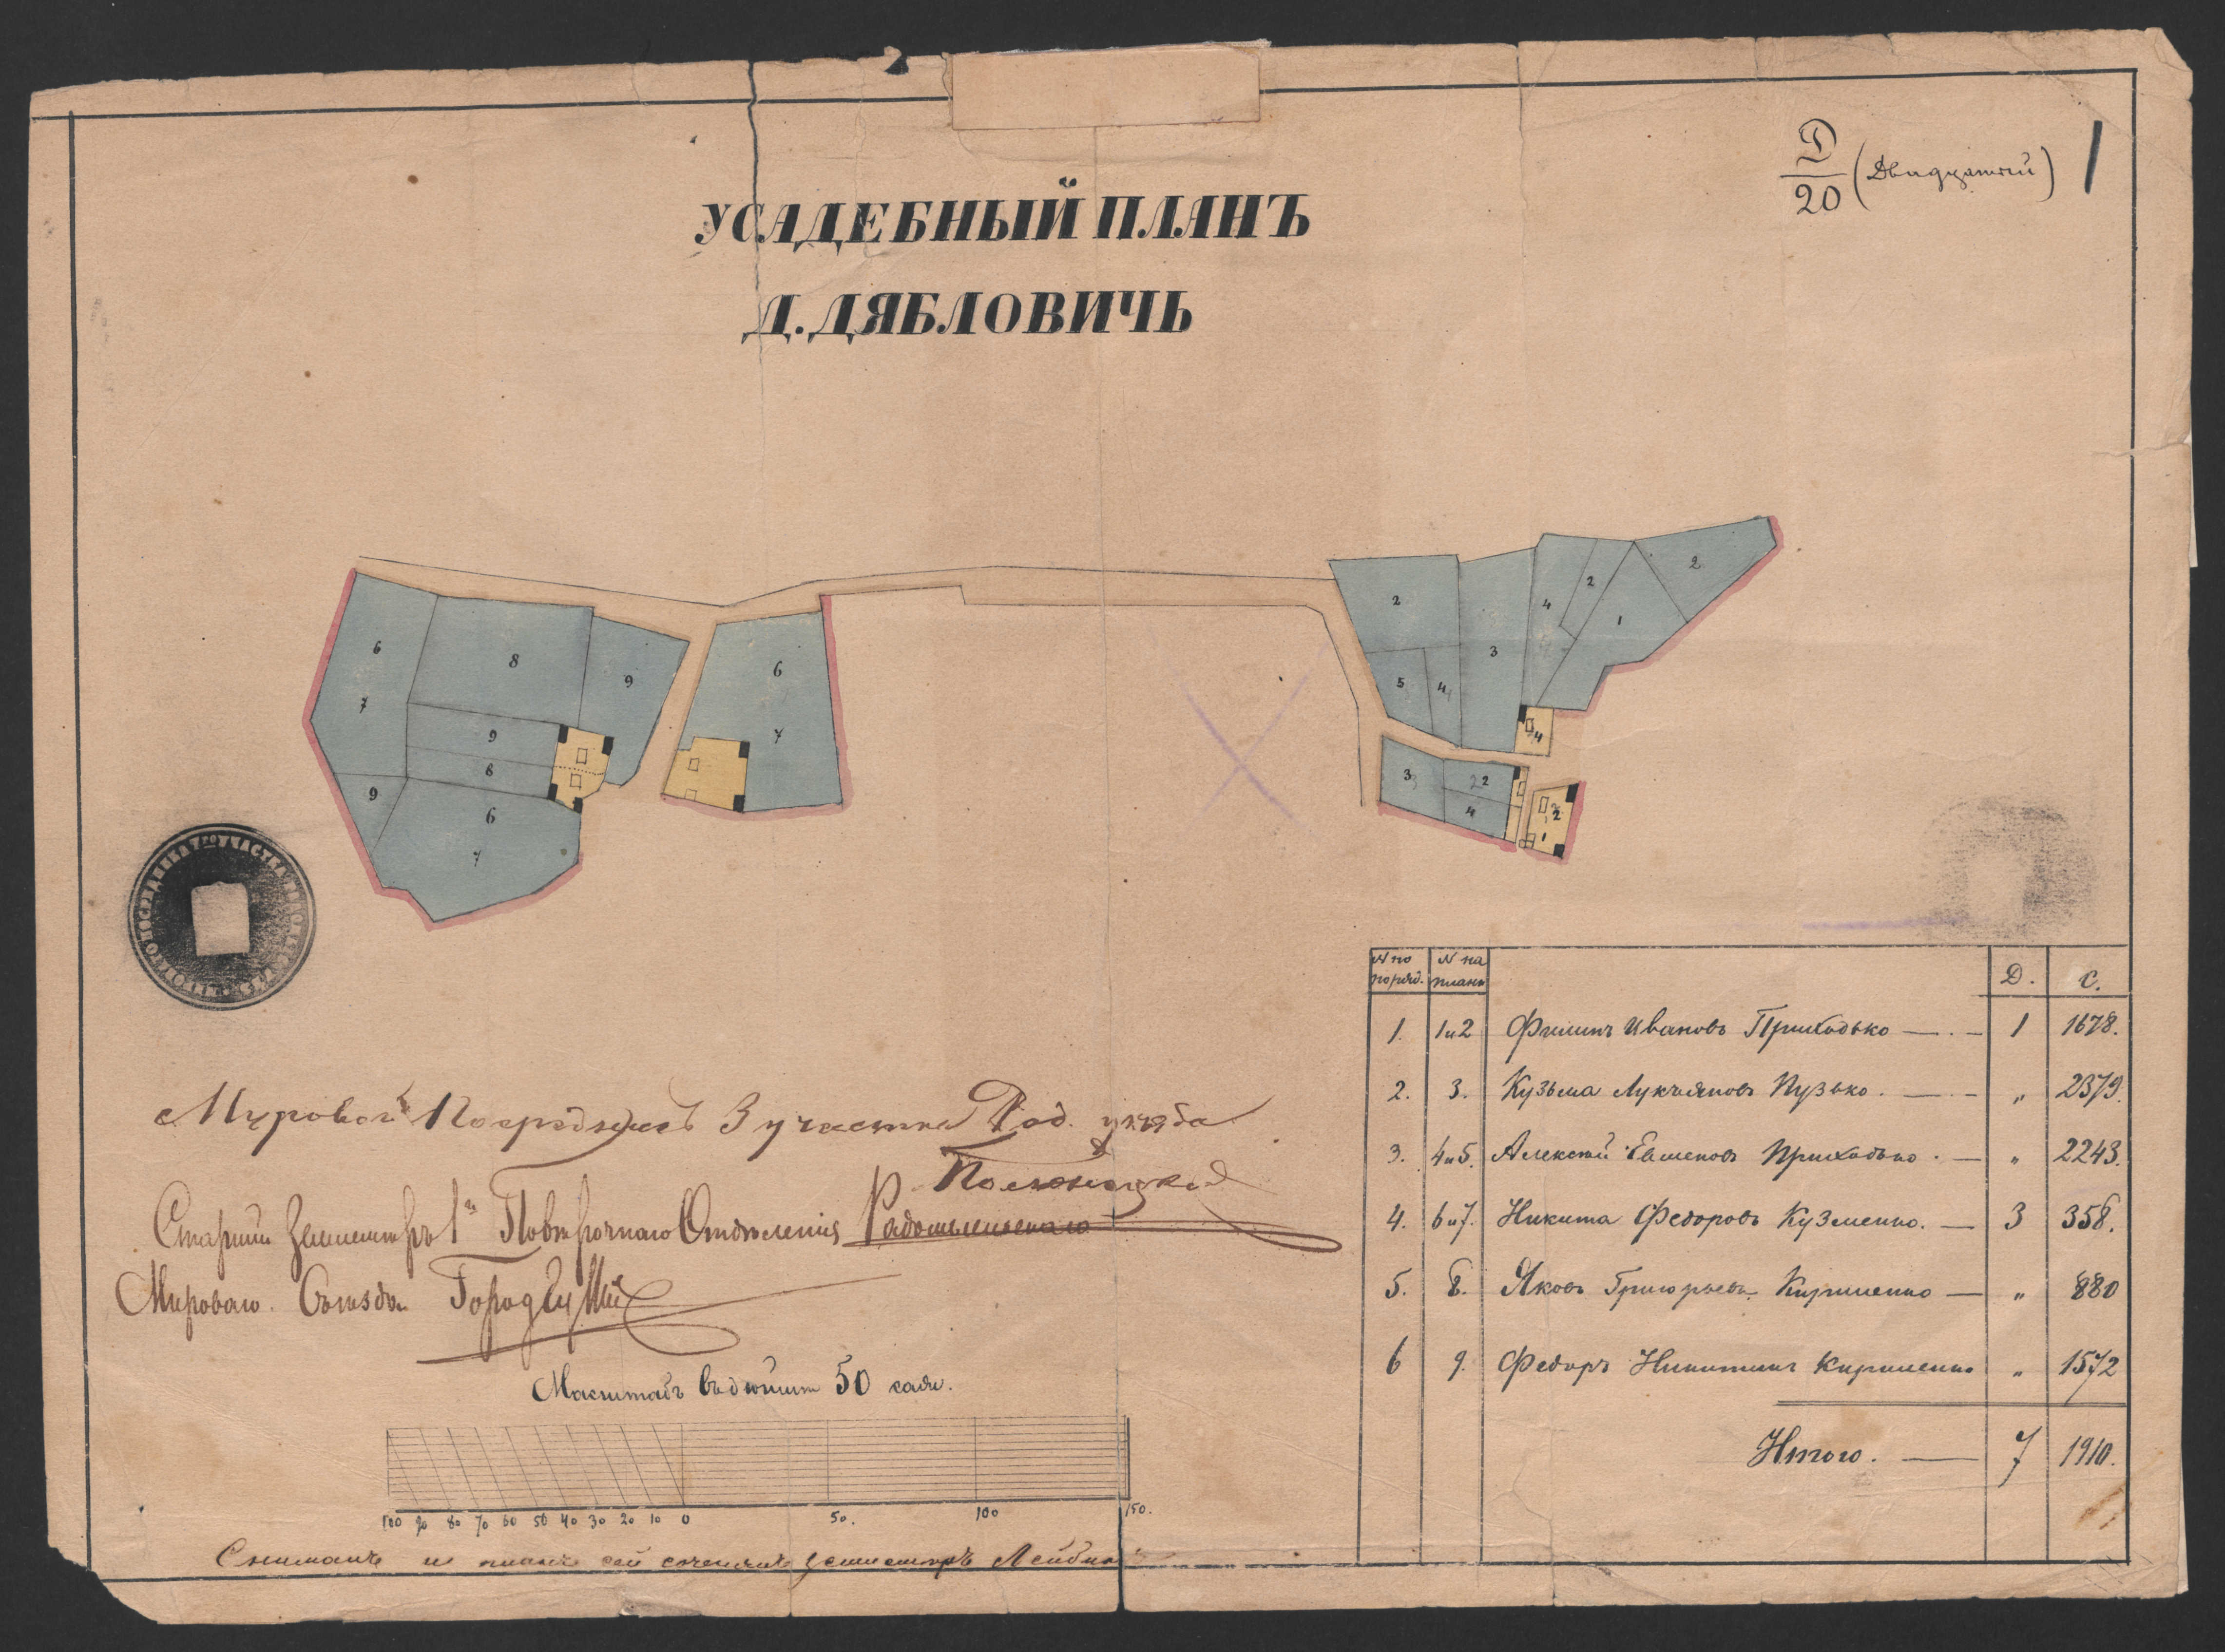 Д/20 (Двадцатый) 1
УСАДЕБНЫЙ ПЛАНЪ
Д. ДЯБЛОВИЧЬ
2 2 4 2 1 3 5 4
6 7 8 9 9 8 9 6 7
6 7
4 3 2 2 4 2 1
N по поряд. N на планѣ Д. С.
1. 1и2 Филипъ Ивановъ Приходько 1 1678.
2. 3. Кузьма Лукъяновъ Пузько. " 2379.
3. 4и5. Алексѣй Приходько. " 2243.
4. 6и7. Никита Федоровъ Кузменко. 3 358.
5. 8. Яковъ Григорьевъ Кириленко " 880
6 9. Федоръ Никитинъ Кириленко " 1572
Итого. 7 1910.
Мировой Посредникъ 3 участка Рад. уѣзда
Старшій Землемѣръ 1го Повѣрочнаго Отдѣленія Радомысльскаго
Мироваго Съѣзда
Масштабъ въ дюймѣ 50 саж.
100 90 80 70 60 50 40 30 20 10 0 50. 100 150.
Снималъ и планъ сей землемѣръ